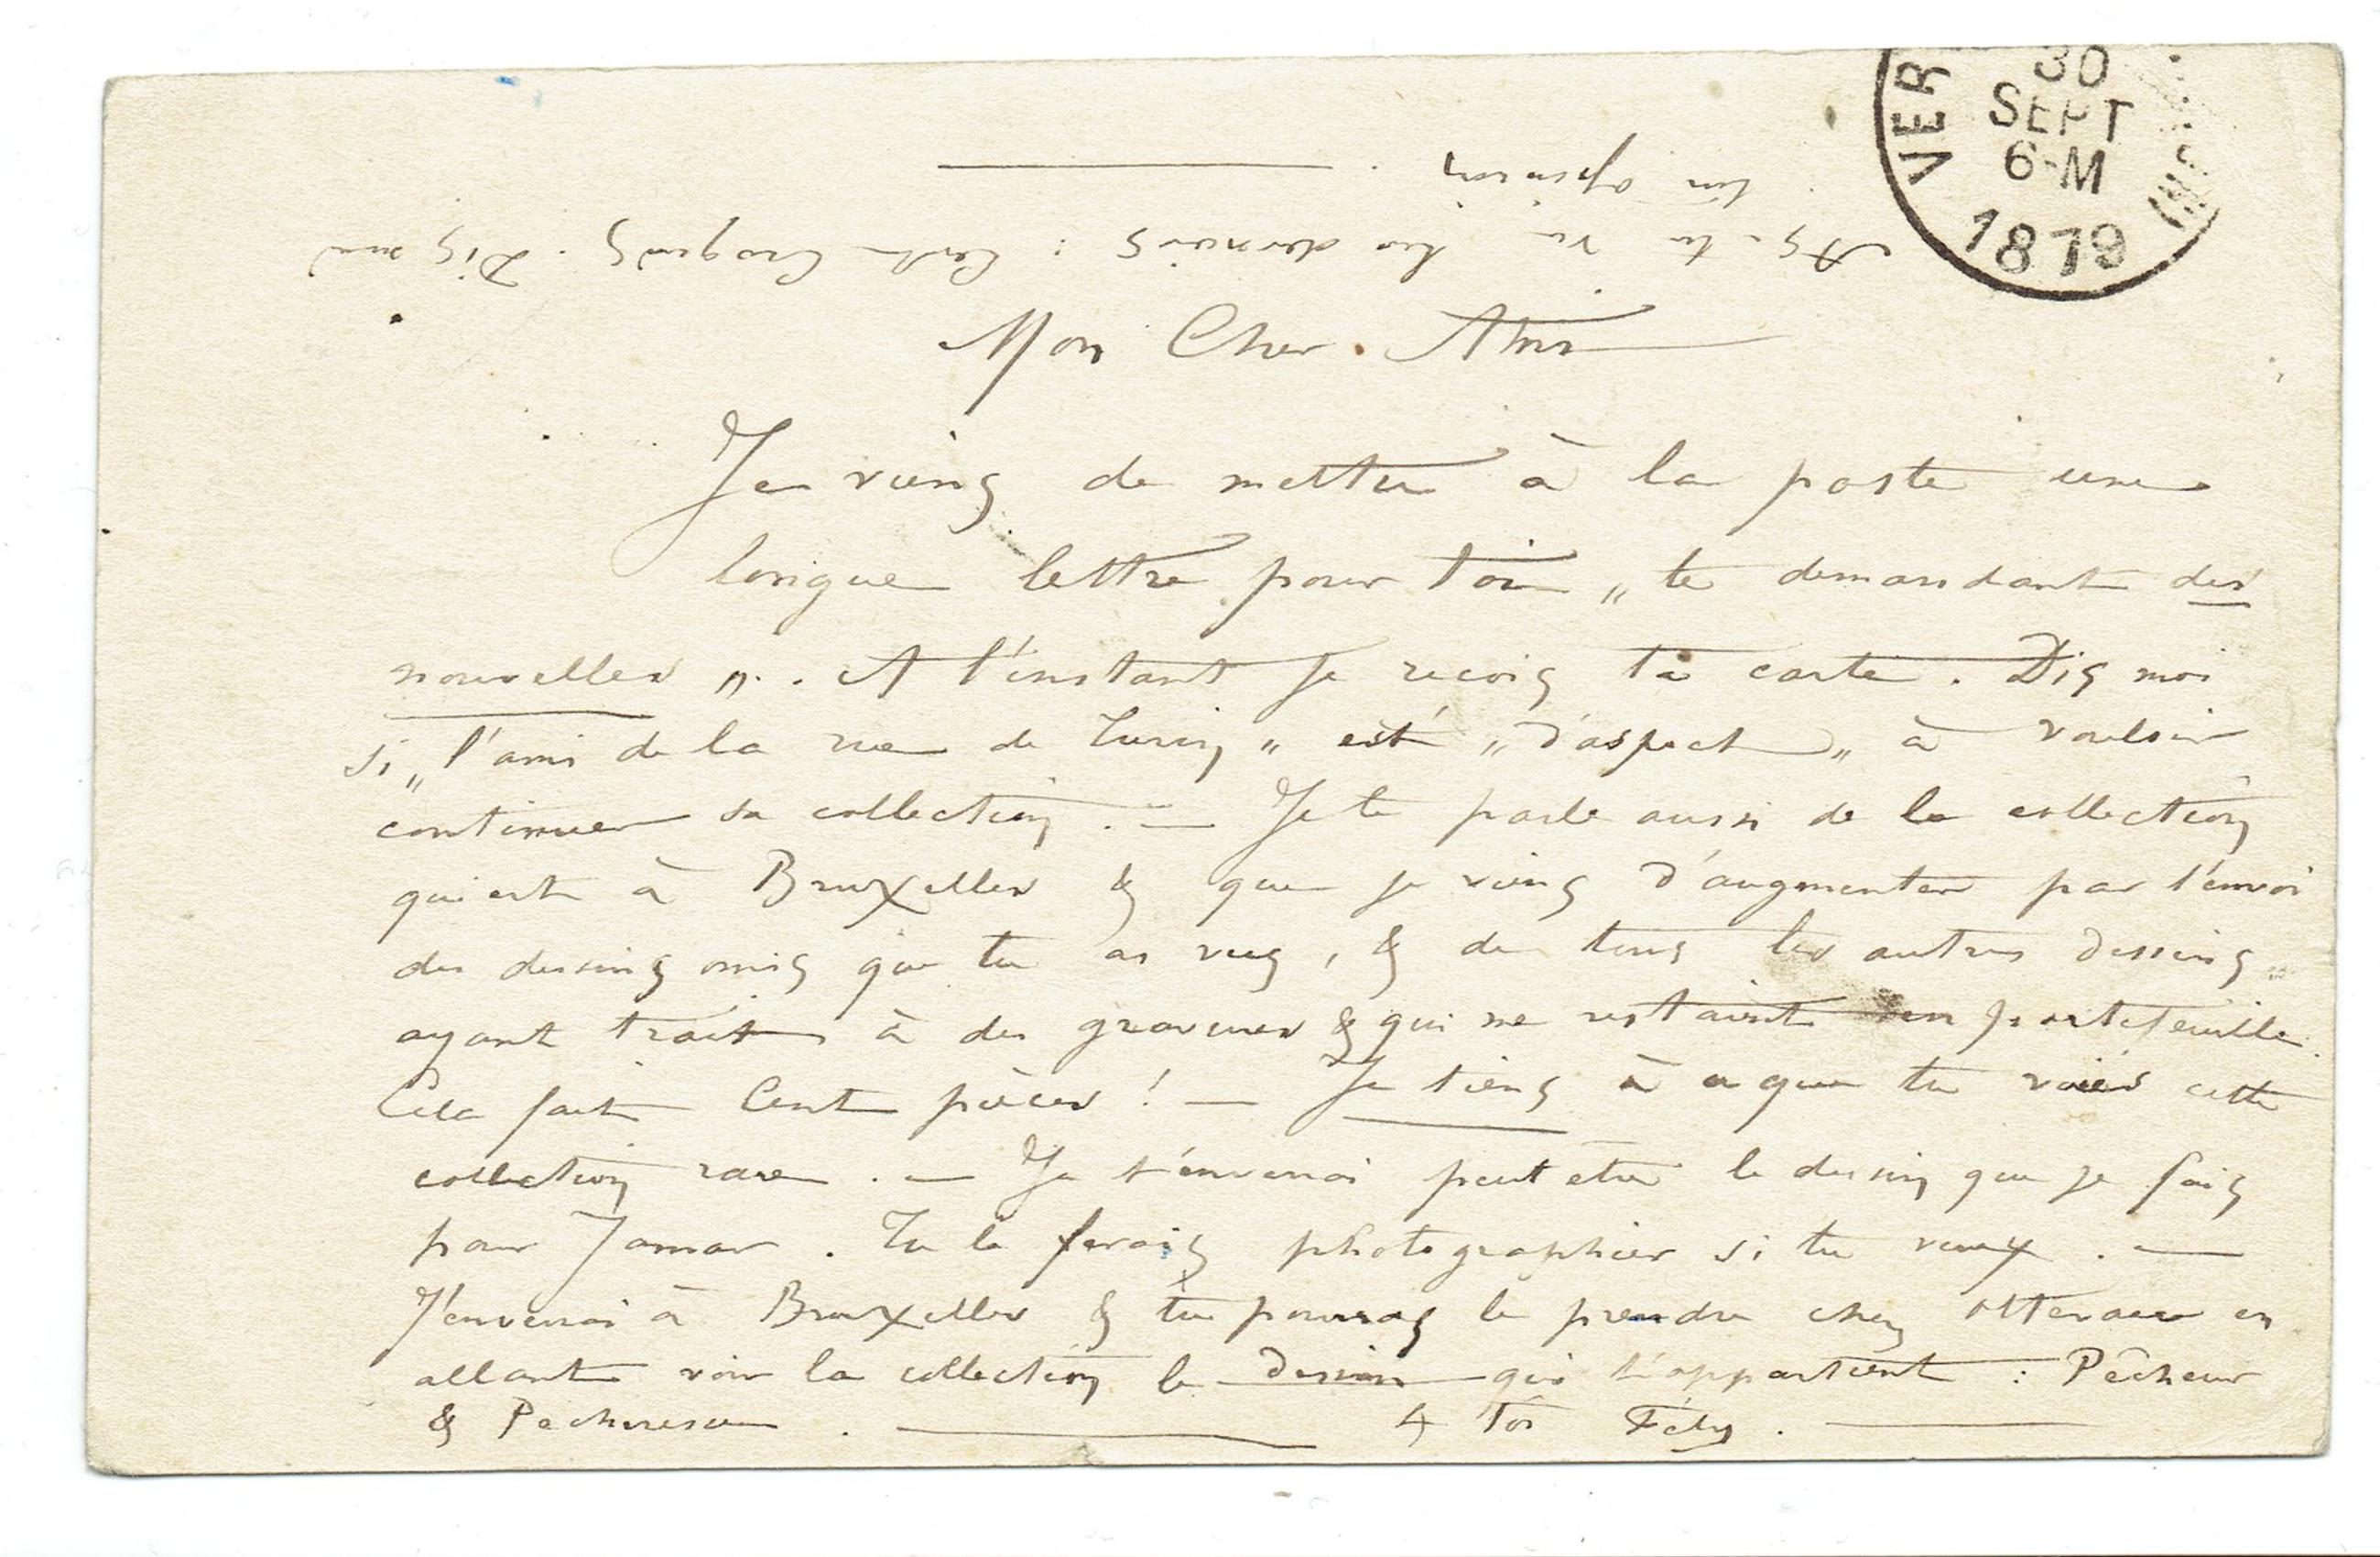 VER
30
SEPT
6-M
1879
As-tu vu les derniers : Cent Croquis. Dis moi
ton opinion.
Mon Cher Ami
Je viens de mettre à la poste une
longue lettre pour toi „ te demandant des
nouvelles „. A l'instant je reçois ta carte. Dis moi
si „ l'ami de la rue de Turin „ est „ d'aspect „ à vouloir
continuer sa collection. — Je te parle aussi de la collection
qui est à Bruxelles & que je viens d'augmenter par l'envoi
des dessins omis que tu as vus, & de tous les autres dessins
ayant trait à des gravures & qui me restaient en portefeuille.
Cela fait Cent pièces ! — Je tiens à ce que tu voies cette
collection rare. — Je t'enverrai peut etre le dessin que je fais
pour Jamar. Tu le ferais photographier si tu veux. —
J'enverrai à Bruxelles & tu pourras le prendre chez en
allant voir la collection le dessin qui t'appartient : Pêcheur
& Pecheresse. — à Toi Fély. —